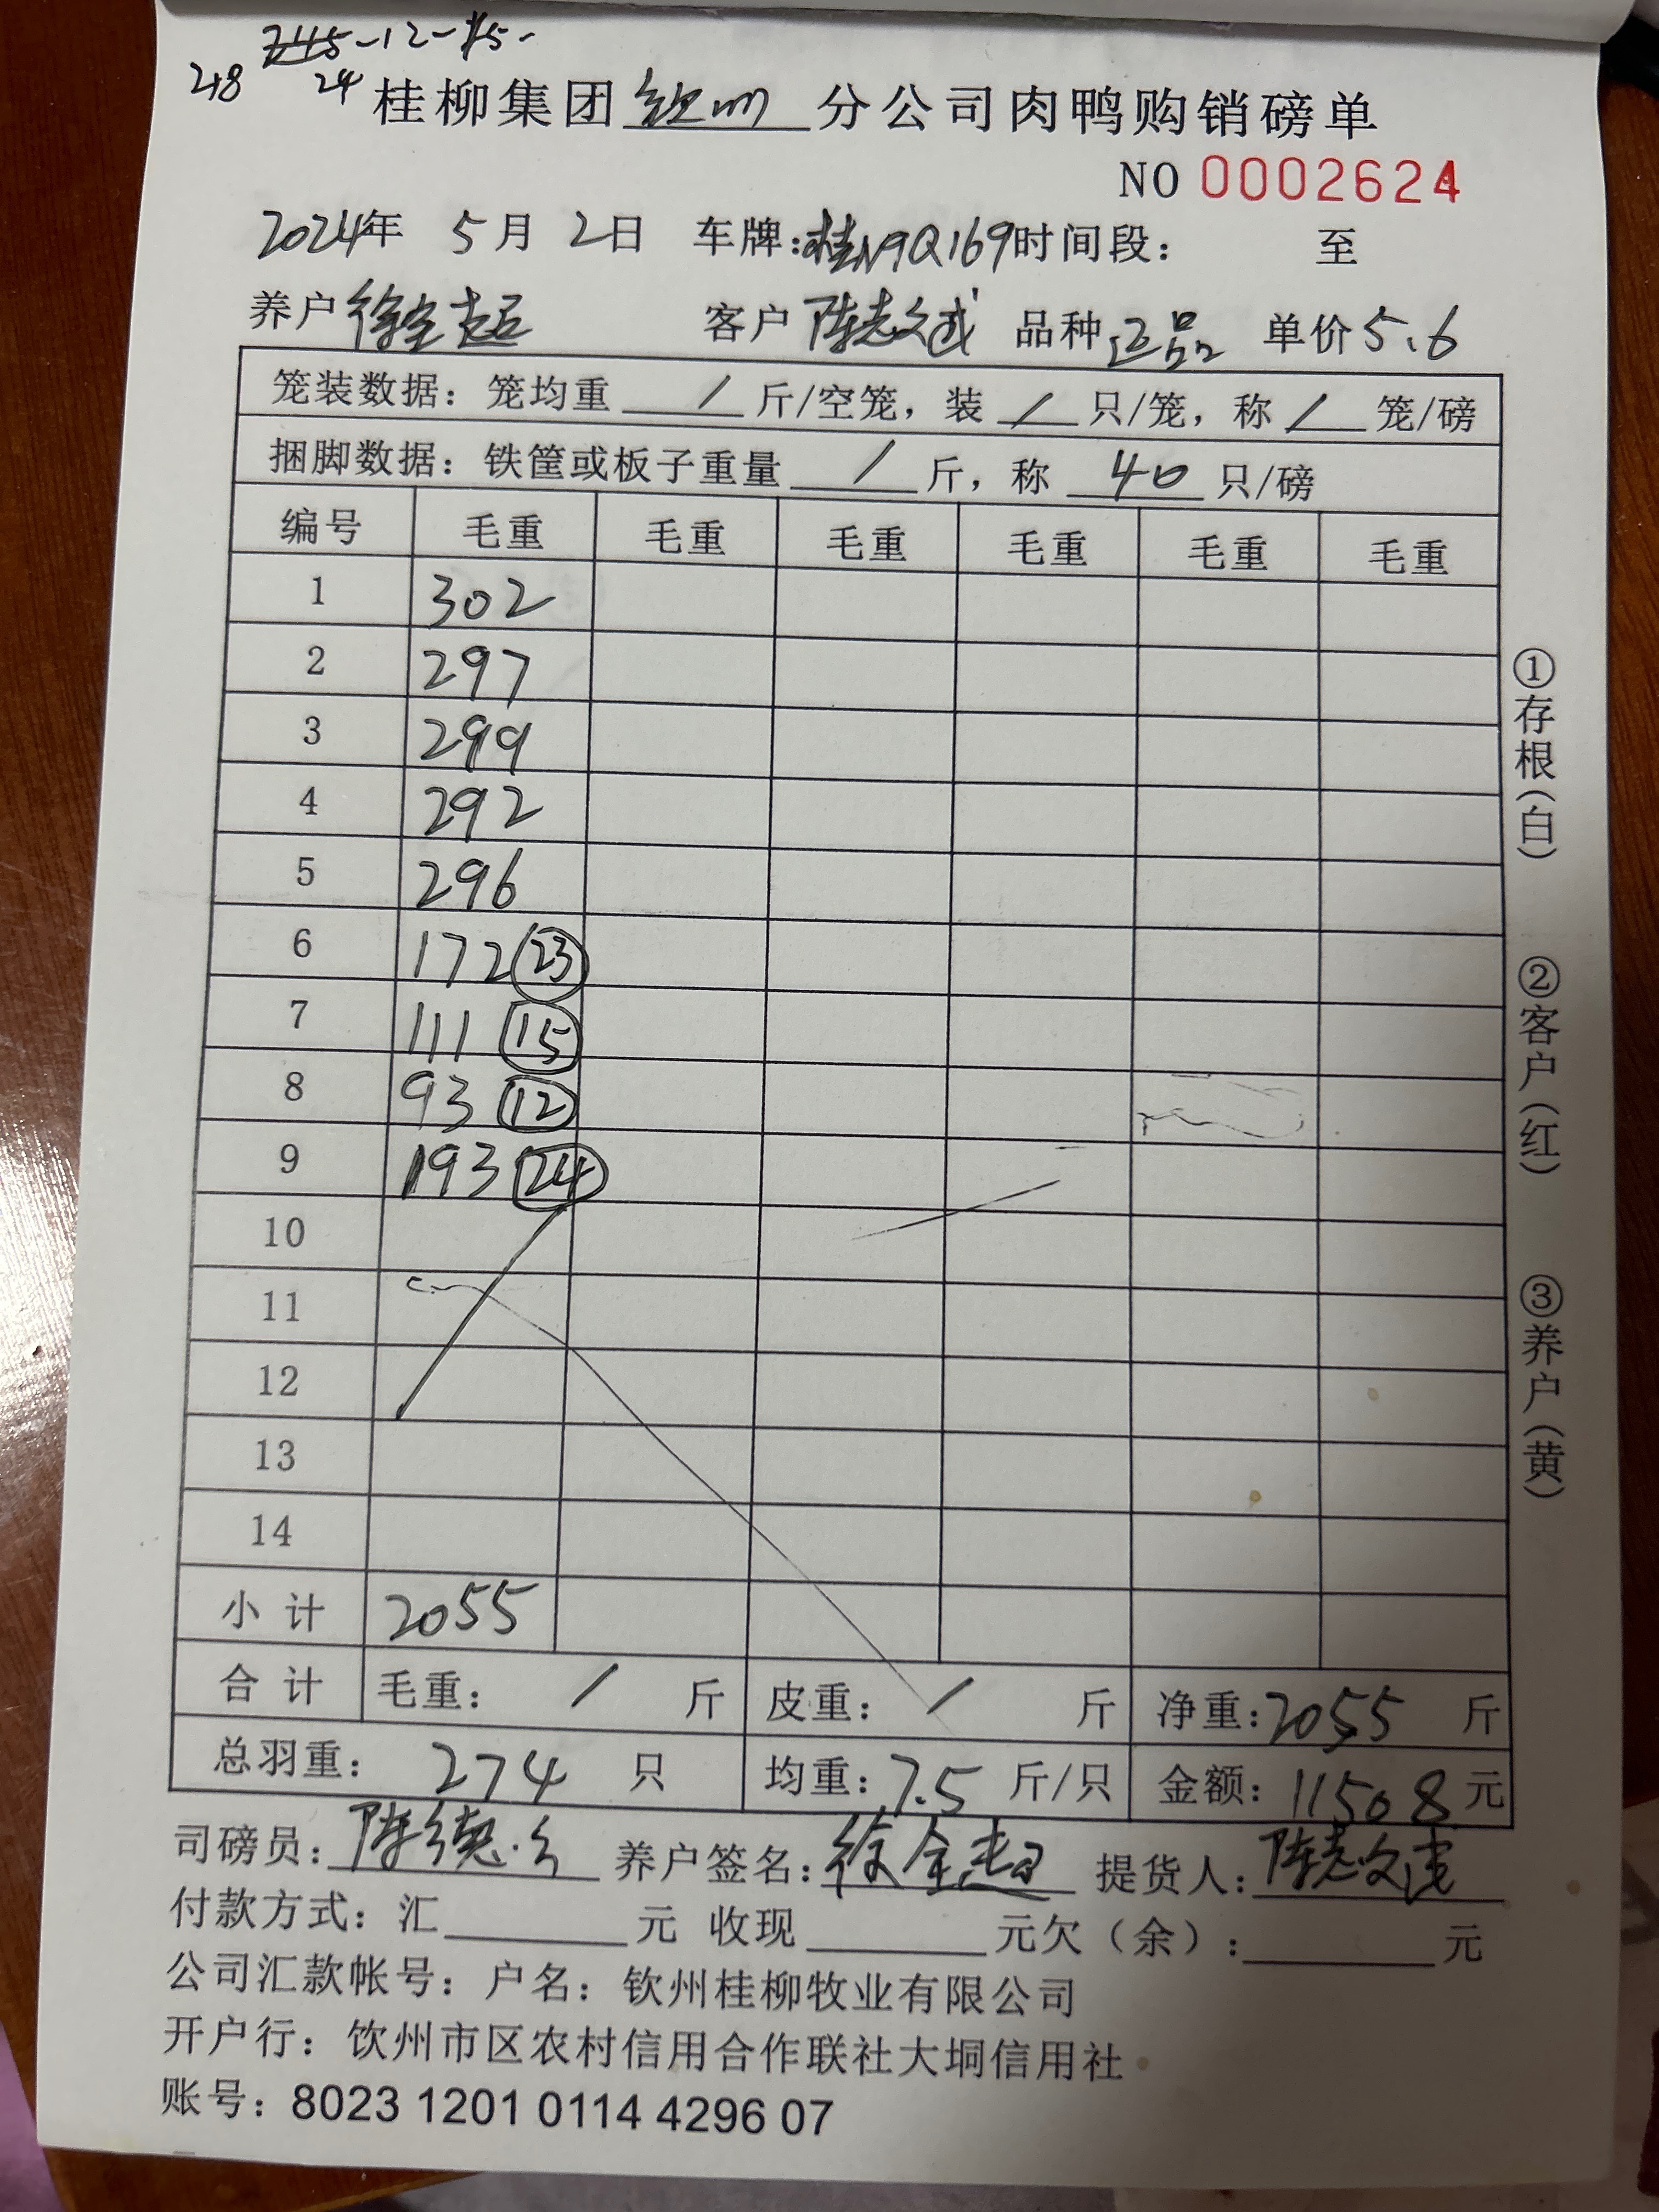 245-12-15-
248 24
桂柳集团钦州分公司肉鸭购销磅单
NO 0002624
2024年 5月 2日 车牌:桂N9Q169时间段: 至
养户徐全超 客户陈志斌 品种正品 单价5.6
笼装数据:笼均重 / 斤/空笼,装 / 只/笼,称 / 笼/磅
捆脚数据:铁筐或板子重量 / 斤,称 40 只/磅
编号 毛重 毛重 毛重 毛重 毛重 毛重
1 302
2 297
3 299
4 292
5 296
6 172 23
7 111 15
8 93 12
9 193 24
10
11
12
13
14
小计 2055
合计 毛重: / 斤 皮重: / 斤 净重:2055 斤
总羽重: 274 只 均重:7.5 斤/只 金额:11508元
司磅员: 养户签名:徐全超 提货人:
付款方式:汇 元 收现 元欠(余): 元
公司汇款帐号:户名:钦州桂柳牧业有限公司
开户行:钦州市区农村信用合作联社大垌信用社
账号:8023 1201 0114 4296 07
①存根(白)
②客户(红)
③养户(黄)